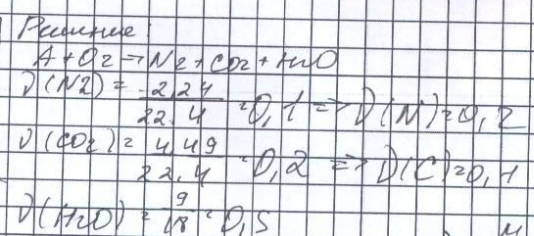 Решение:
A + O2 → N2 + CO2 + H2O
ν(N2) = 2,24 / 22,4 = 0,1 => ν(N) = 0,2
ν(CO2) = 4,49 / 22,4 = 0,2 => ν(C) = 0,1
ν(H2O) = 9 / 18 = 0,5